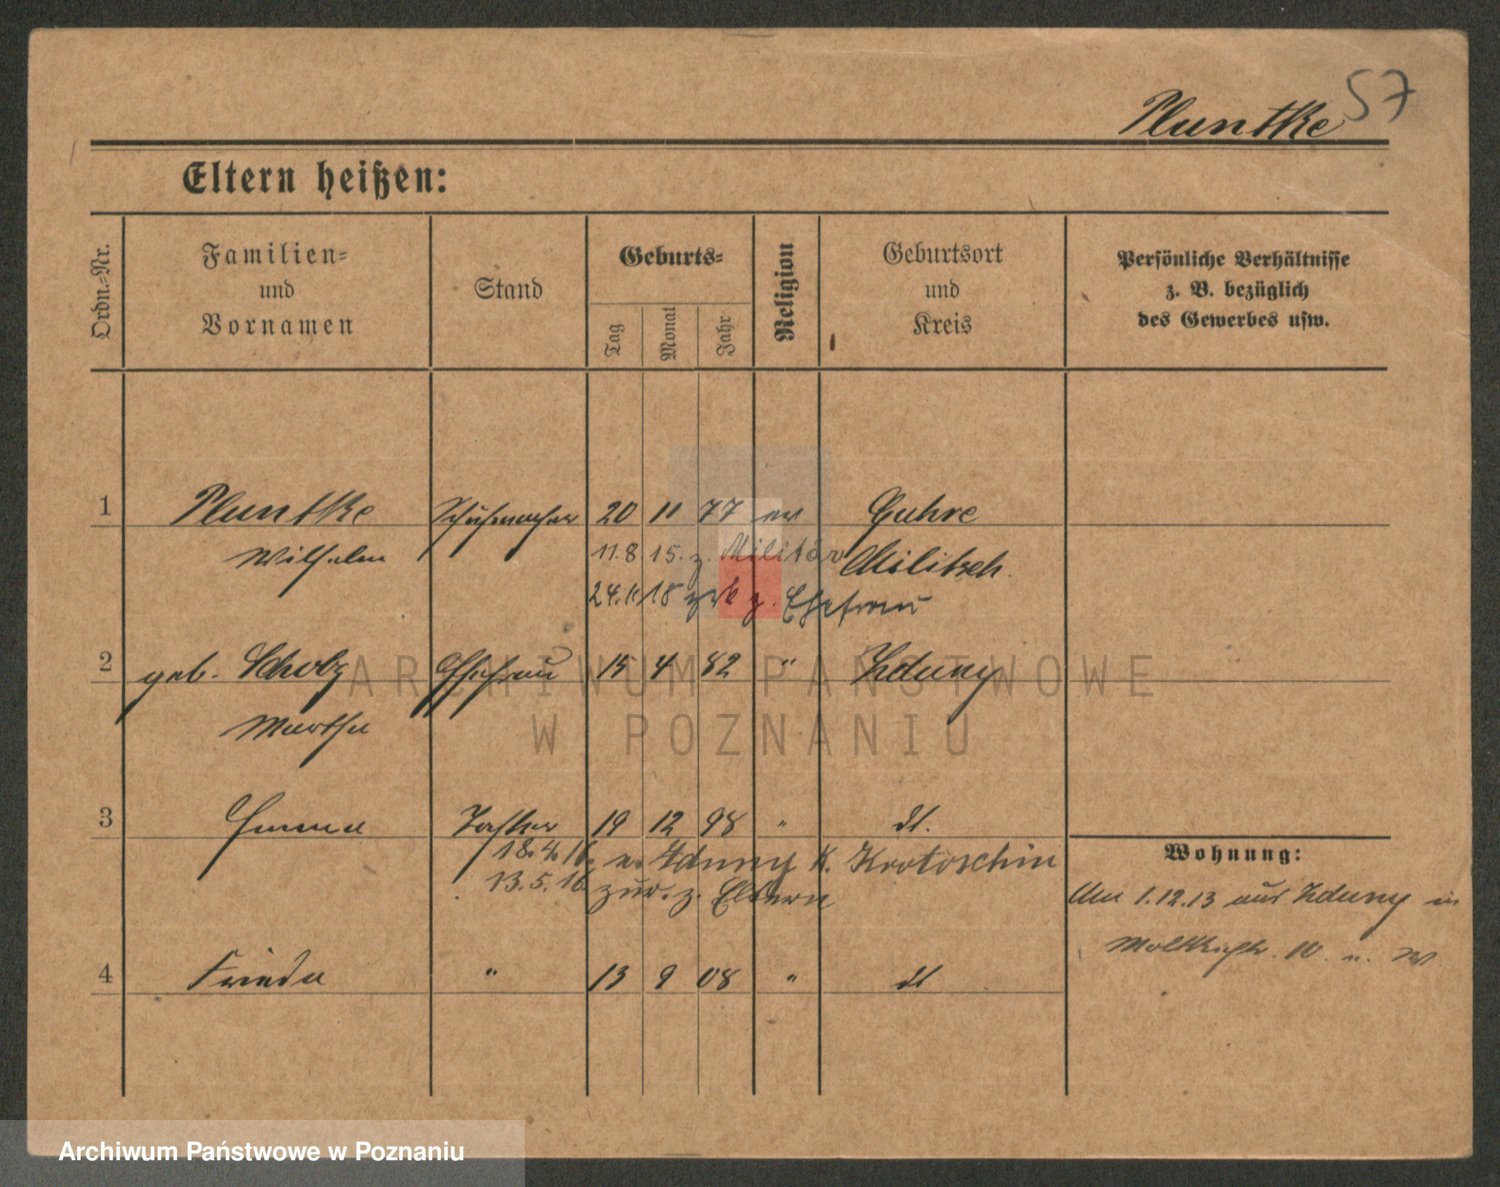 57
Pluntke
Eltern heißen:
Ordn.-Nr.
Familien-
und
Vornamen
Stand
Geburts-
Tag
Monat
Jahr
Religion
Geburtsort
und
Kreis
Persönliche Verhältnisse
z. B. bezüglich
des Gewerbes usw.
1 Pluntke Schuhmacher 20 11 77 ev Guhre
Wilhelm 11.8 15. z. Militär Militsch.
24.11 18 zrk z. Ehefrau
2 geb. Scholz Ehefrau 15 4 82 " Zduny
Martha
ARCHIWUM PAŃSTWOWE
W POZNANIU
3 Emma Tochter 19 12 98 " dt.
18.4.16. n. Zduny K. Krotoschin
13.5.16. zur. z. Eltern
Wohnung:
Am 1.12.13 aus Zduny in
Moltkestr. 10
4 Frieda " 13 9 08 " dt
Archiwum Państwowe w Poznaniu